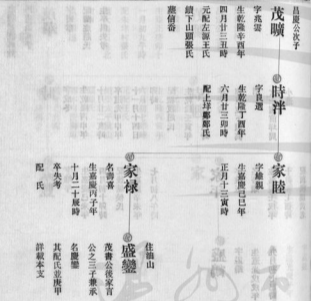 昌慶公次子
茂曠
字兆雲
生乾隆辛酉年
四月廿三丑時
元配左源王氏
續下山頭張氏
時泮
字良選
生乾隆丁酉年
六月廿三卯時
配上垟鄭鄭氏
家睦
字維親
生嘉慶己巳年
正月十三寅時
家祿
名壽喜
生嘉慶丙子年
十月二十辰時
卒失考
配 氏
盛鑾
住佃山
茂書公後家言
公之三子兼承
名慶鑾
其配氏並庚甲
詳載本支